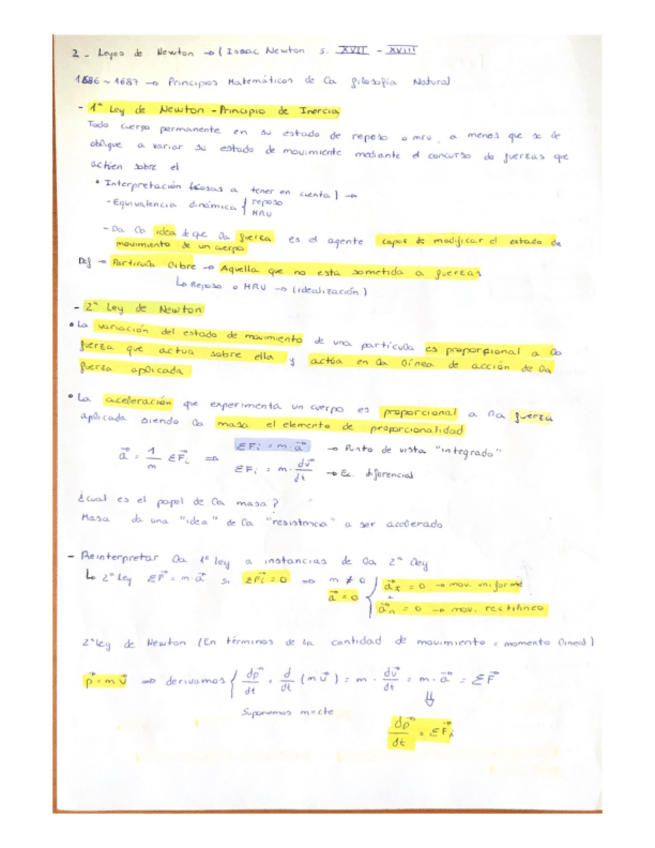 2 - Leyes de Newton → ( Isaac Newton s. XVII - XVIII
1686 ~ 1687 → Principios Matemáticos de la filosofía Natural
- 1ª Ley de Newton - Principio de Inercia
Todo cuerpo permanente en su estado de reposo o mru, a menos que se le
obligue a variar su estado de movimiento mediante el concurso de fuerzas que
actúen sobre el
• Interpretación (cosas a tener en cuenta) →
- Equivalencia dinámica { reposo
MRU
- Da la idea de que la fuerza es el agente capaz de modificar el estado de
movimiento de un cuerpo
Def → Partícula libre → Aquella que no esta sometida a fuerzas
↳ Reposo o MRU → (idealización)
- 2ª Ley de Newton
• La variación del estado de movimiento de una partícula es proporcional a la
fuerza que actua sobre ella y actúa en la línea de acción de la
fuerza aplicada
• La aceleración que experimenta un cuerpo es proporcional a la fuerza
aplicada siendo la masa el elemento de proporcionalidad
a⃗ = 1/m ΣF⃗i ⇒ ΣFi = m·a⃗ → Punto de vista "integrado"
ΣFi = m· dv⃗/dt → Ec. diferencial
¿cual es el papel de la masa?
Masa da una "idea" de la "resistencia" a ser acelerado
- Reinterpretar la 1ª ley a instancias de la 2ª ley
↳ 2ª ley ΣF⃗ = m·a⃗ si ΣF⃗i = 0 ⇒ m ≠ 0 { a⃗ = 0 → mov. uniforme
a⃗ = 0 { a⃗n = 0 → mov. rectilíneo
2ª ley de Newton (En términos de la cantidad de movimiento = momento lineal)
p⃗ = m v⃗ ⇒ derivamos { dp⃗/dt = d/dt (m v⃗) = m · dv⃗/dt = m · a⃗ = ΣF⃗
⇓
Suponemos m=cte
dp⃗/dt = ΣF⃗i